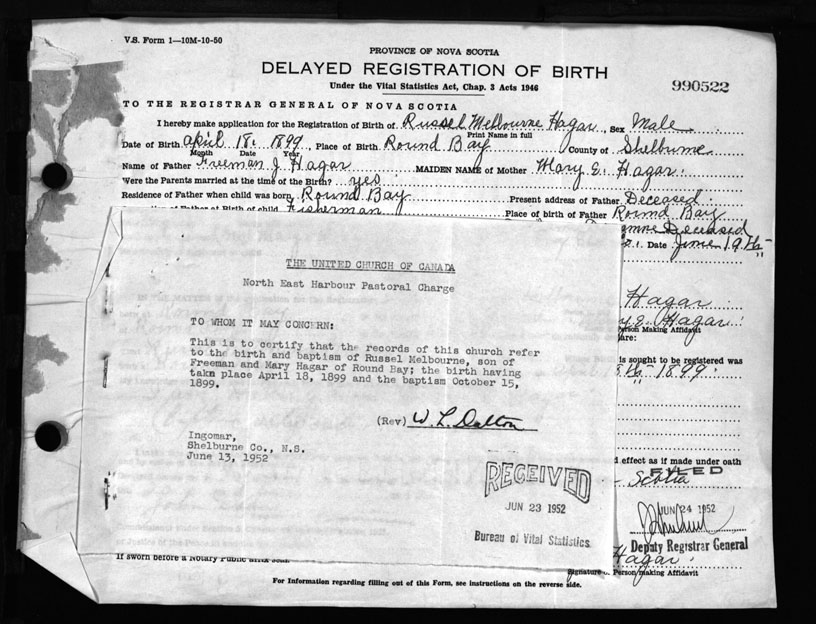 V.S. Form 1—10M-10-50
PROVINCE OF NOVA SCOTIA
DELAYED REGISTRATION OF BIRTH
Under the Vital Statistics Act, Chap. 3 Acts 1946
990522
TO THE REGISTRAR GENERAL OF NOVA SCOTIA
I hereby make application for the Registration of Birth of Russel Melbourne Hagar, Sex Male
Print Name in full
Date of Birth April 18. 1899, Place of Birth Round Bay County of Shelburne
Month Date Year
Name of Father Freeman J. Hagar MAIDEN NAME of Mother Mary E. Hagar.
Were the Parents married at the time of the Birth? yes
Residence of Father when child was born Round Bay Present address of Father Deceased
of Father at Birth of child Fisherman Place of birth of Father Round Bay
Deceased
Date June 19th
THE UNITED CHURCH OF CANADA
North East Harbour Pastoral Charge
TO WHOM IT MAY CONCERN:
This is to certify that the records of this church refer
to the birth and baptism of Russel Melbourne, son of
Freeman and Mary Hagar of Round Bay; the birth having
taken place April 18, 1899 and the baptism October 15,
1899.
(Rev) W. L. Dalton
Ingomar,
Shelburne Co., N.S.
June 13, 1952
RECEIVED
JUN 23 1952
Bureau of Vital Statistics
Hagar
E. Hagar.
Person Making Affidavit
is sought to be registered was
1899.
effect as if made under oath
FILED
Scotia
JUN 24 1952
Deputy Registrar General
Hagar.
If sworn before a Notary Public affix seal.
Signature of Person making Affidavit
For Information regarding filling out of this Form, see instructions on the reverse side.